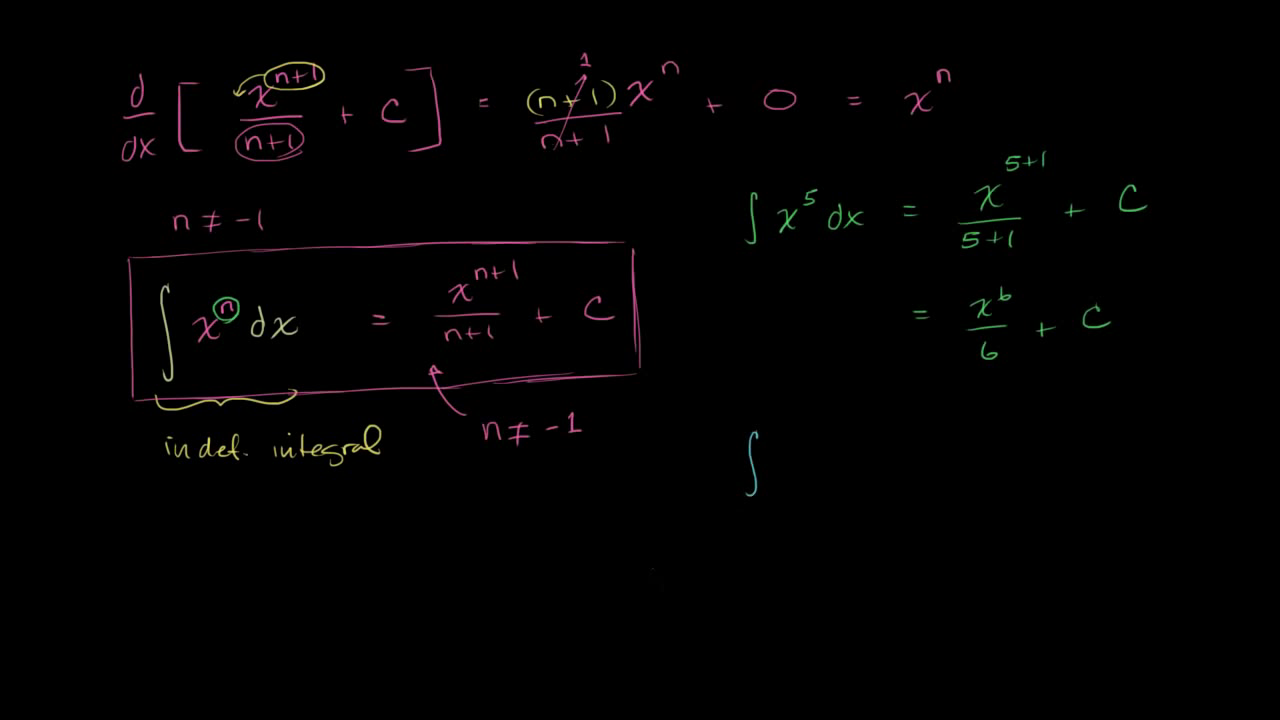 d/dx [ x^(n+1)/(n+1) + C ] = (n+1)x^n/(n+1) + 0 = x^n
1
n ≠ -1
∫ x^n dx = x^(n+1)/(n+1) + C
n ≠ -1
indef. integral
∫ x^5 dx = x^(5+1)/(5+1) + C
= x^6/6 + C
∫